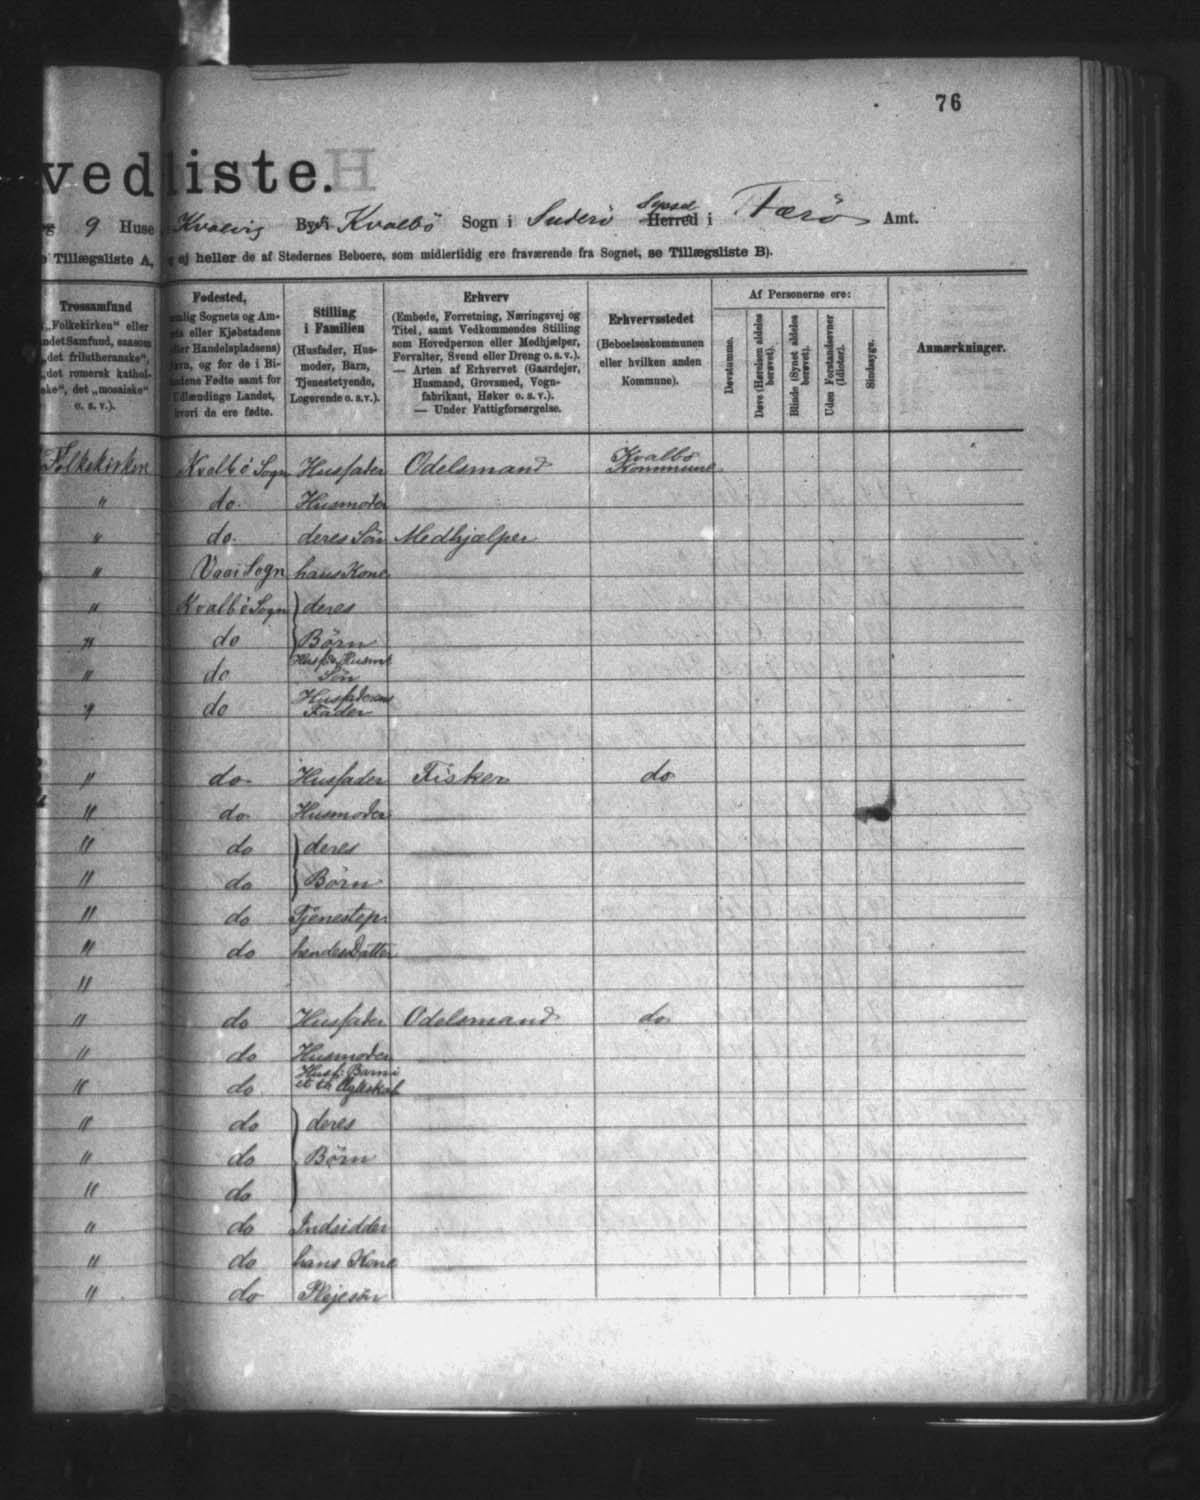 76
vedliste.
9 Huse Kvalvig By i Kvalbø Sogn i Suderø Syssel Herred i Færø Amt.
Tillægsliste A, ej heller de af Stedernes Beboere, som midlertidig ere fraværende fra Sognet, se Tillægsliste B).
Trossamfund
„Folkekirken“ eller
andet Samfund, saasom
„det frilutheranske“,
„det romersk kathol-
ske“, det „mosaiske“
o. s. v.).
Fødested,
nemlig Sognets og Am-
tets eller Kjøbstadens
eller Handelspladsens)
Navn, og for de i Bi-
landene Fødte samt for
Udlændinge Landet,
hvori de ere fødte.
Stilling
i Familien
(Husfader, Hus-
moder, Barn,
Tjenestetyende,
Logerende o. s. v.).
Erhverv
(Embede, Forretning, Næringsvej og
Titel, samt Vedkommendes Stilling
som Hovedperson eller Medhjælper,
Forvalter, Svend eller Dreng o. s. v.).
— Arten af Erhvervet (Gaardejer,
Husmand, Grovsmed, Vogn-
fabrikant, Høker o. s. v.).
— Under Fattigforsørgelse.
Erhvervsstedet
(Beboelseskommunen
eller hvilken anden
Kommune).
Af Personerne ere:
Døvstumme.
Døve (Hørelsen aldeles berøvet).
Blinde (Synet aldeles berøvet).
Uden Forstandsevner (Idioter).
Sindssyge.
Anmærkninger.
Folkekirken Kvalbø Sogn Husfader Odelsmand Kvalbø Kommune
" do. Husmoder
" do. deres Søn Medhjælper
" Vaai Sogn hans Kone
" Kvalbø Sogn deres
" do Børn
" do Husf. og Husm. Søn
" do Husfaderens Fader
" do. Husfader Fisker do
" do. Husmoder
" do deres
" do Børn
" do Tjenestep.
" do hendes Datter
"
" do Husfader Odelsmand do
" do Husmoder
" do. Husf: Barn i et tb. Ægteskab
" do deres
" do Børn
" do
" do Indsidder
" do hans Kone
" do Plejesøn